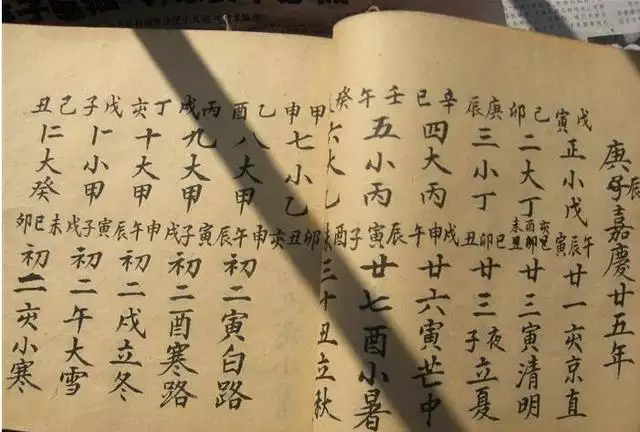 庚子辰嘉慶廿五年
戊寅正小戊午寅辰廿一亥京直
己卯二大丁亥巳酉卯未丑廿三寅清明
庚辰三小丁巳卯丑廿三子夜立夏
辛巳四大丙戌申午廿六寅芒中
壬午五小丙辰寅子廿七酉小暑
癸六大乙酉未三十丑立秋
甲申七小乙卯丑亥
乙酉八大甲申午辰初二寅白路
丙戌九大甲寅子戌初二酉寒路
丁亥十大甲申午辰初二戌立冬
戊子十一小甲寅子戌初二午大雪
己丑十二大癸未巳卯初二亥小寒